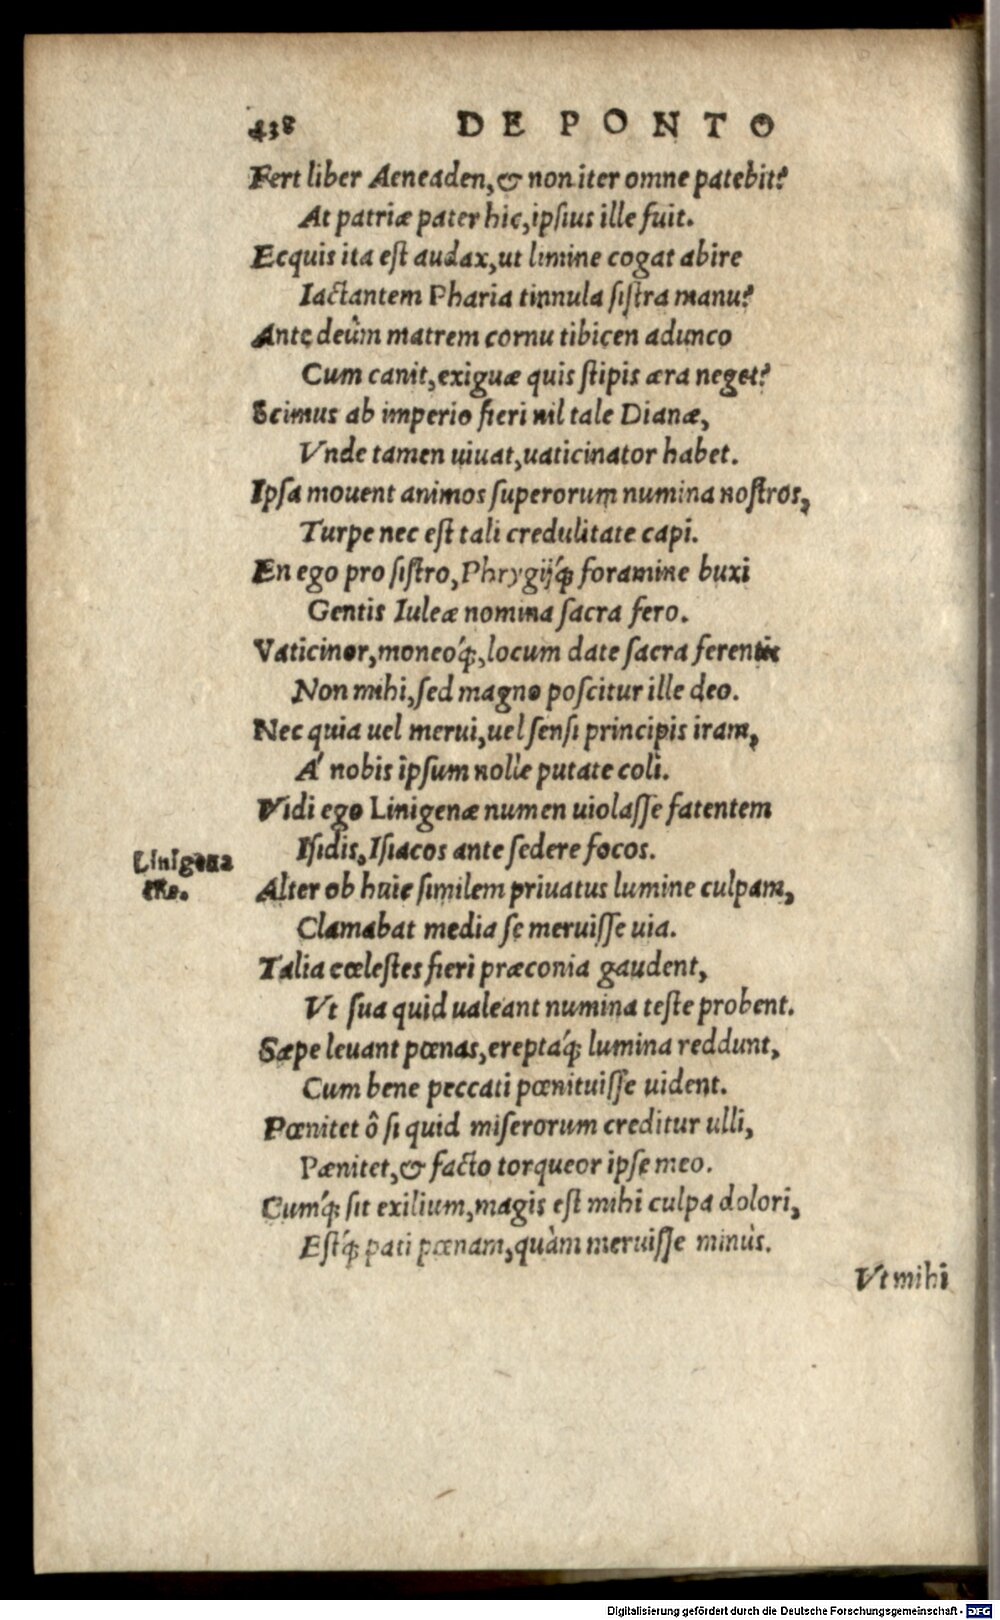 438 DE PONTO
Fert liber Aeneaden, & non iter omne patebit?
At patriæ pater hic, ipſius ille fuit.
Ecquis ita eſt audax, ut limine cogat abire
Iactantem Pharia tinnula ſiſtra manu?
Ante deûm matrem cornu tibicen adunco
Cum canit, exiguæ quis ſtipis æra neget?
Scimus ab imperio fieri nil tale Dianæ,
Vnde tamen uiuat, uaticinator habet.
Ipſa mouent animos ſuperorum numina noſtros,
Turpe nec eſt tali credulitate capi.
En ego pro ſiſtro, Phrygijq́; foramine buxi
Gentis Iuleæ nomina ſacra fero.
Vaticinor, moneoq́;, locum date ſacra ferenti
Non mihi, ſed magno poſcitur ille deo.
Nec quia uel merui, uel ſenſi principis iram,
A' nobis ipſum nolle putate coli.
Vidi ego Linigenæ numen uiolaſſe fatentem
Iſidis, Iſiacos ante ſedere focos.
Linigena
Alter ob huic ſimilem priuatus lumine culpam,
Clamabat media ſe meruiſſe uia.
Talia cœleſtes fieri præconia gaudent,
Vt ſua quid ualeant numina teſte probent.
Sæpe leuant pœnas, ereptaq́; lumina reddunt,
Cum bene peccati pœnituiſſe uident.
Pœnitet ô ſi quid miſerorum creditur ulli,
Pænitet, & facto torqueor ipſe meo.
Cumq́; ſit exilium, magis eſt mihi culpa dolori,
Eſtq́; pati pœnam, quàm meruiſſe minùs.
Vt mihi
Digitalisierung gefördert durch die Deutsche Forschungsgemeinschaft - DFG